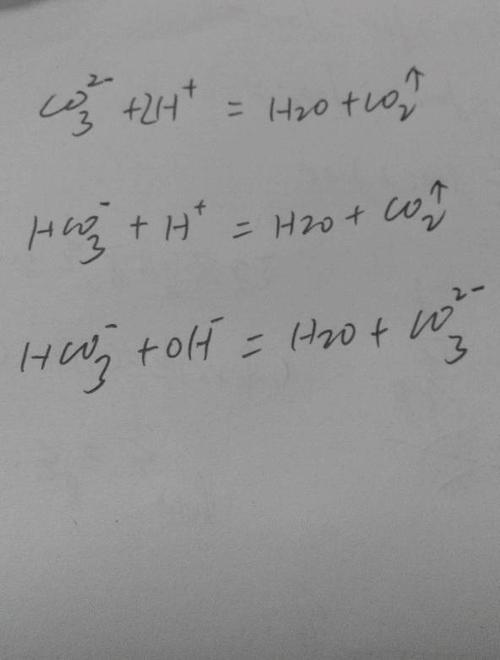 CO₃²⁻ + 2H⁺ = H₂O + CO₂↑
HCO₃⁻ + H⁺ = H₂O + CO₂↑
HCO₃⁻ + OH⁻ = H₂O + CO₃²⁻